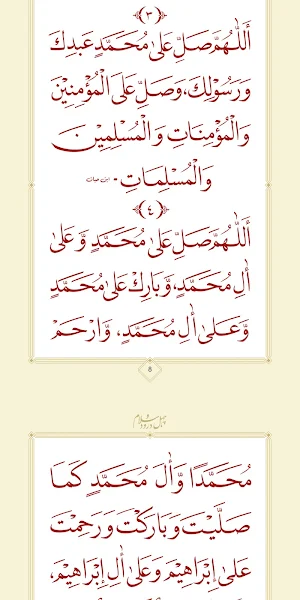 (٣)
أَللّٰهُمَّ صَلِّ عَلىٰ مُحَمَّدٍ عَبدِكَ
وَرَسُوْلِكَ، وَصَلِّ عَلَى الْمُؤْمِنِيْنَ
وَالْمُؤْمِنَاتِ وَالْمُسْلِمِيْنَ
وَالْمُسْلِمَاتِ۔ ابن حبان
(٤)
أَللّٰهُمَّ صَلِّ عَلىٰ مُحَمَّدٍ وَّعَلىٰ
أٰلِ مُحَمَّدٍ، وَّبَارِكْ عَلىٰ مُحَمَّدٍ
وَّعَلىٰ أٰلِ مُحَمَّدٍ، وَّارْحَمْ
8
چہل درود و سلام
مُحَمَّدًا وَّأٰلَ مُحَمَّدٍ كَمَا
صَلَّيْتَ وَبَارَكْتَ وَرَحِمْتَ
عَلىٰ إِبْرَاهِيْمَ وَعَلىٰ أٰلِ إِبْرَاهِيْمَ،